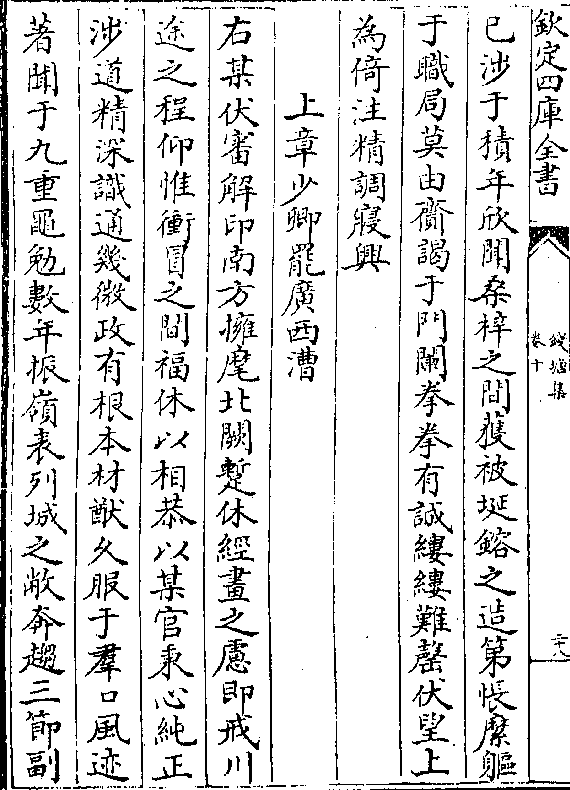 欽定四庫全書
錢塘集
卷十
二十八
已涉于積年欣聞桑梓之間獲被埏鎔之造第悵縻軀
于職局莫由齎謁于門闌拳拳有誠縷縷難罄伏望上
為倚注精調寢興
上章少卿罷廣西漕
右某伏審解印南方擁麾北闕蹔休經畫之慮即戒川
途之程仰惟衝冒之間福休以相恭以某官秉心純正
涉道精深識通幾微政有根本材猷久服于羣口風迹
著聞于九重黽勉數年振嶺表列城之敝奔趨三節副